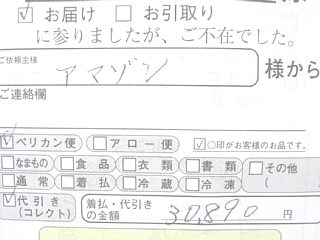 ☑ お届け ☐ お引取り
に参りましたが、ご不在でした。
ご依頼主様
アマゾン 様から
ご連絡欄
☑ペリカン便 ☐アロー便 ☑○印がお客様のお品です。
☐なまもの ☐食品 ☐衣類 ☐書類 ☐その他
☐通常 ☐着払 ☐冷蔵 ☐冷凍 (
☑代引き(コレクト) 着払・代引きの金額 30,890 円